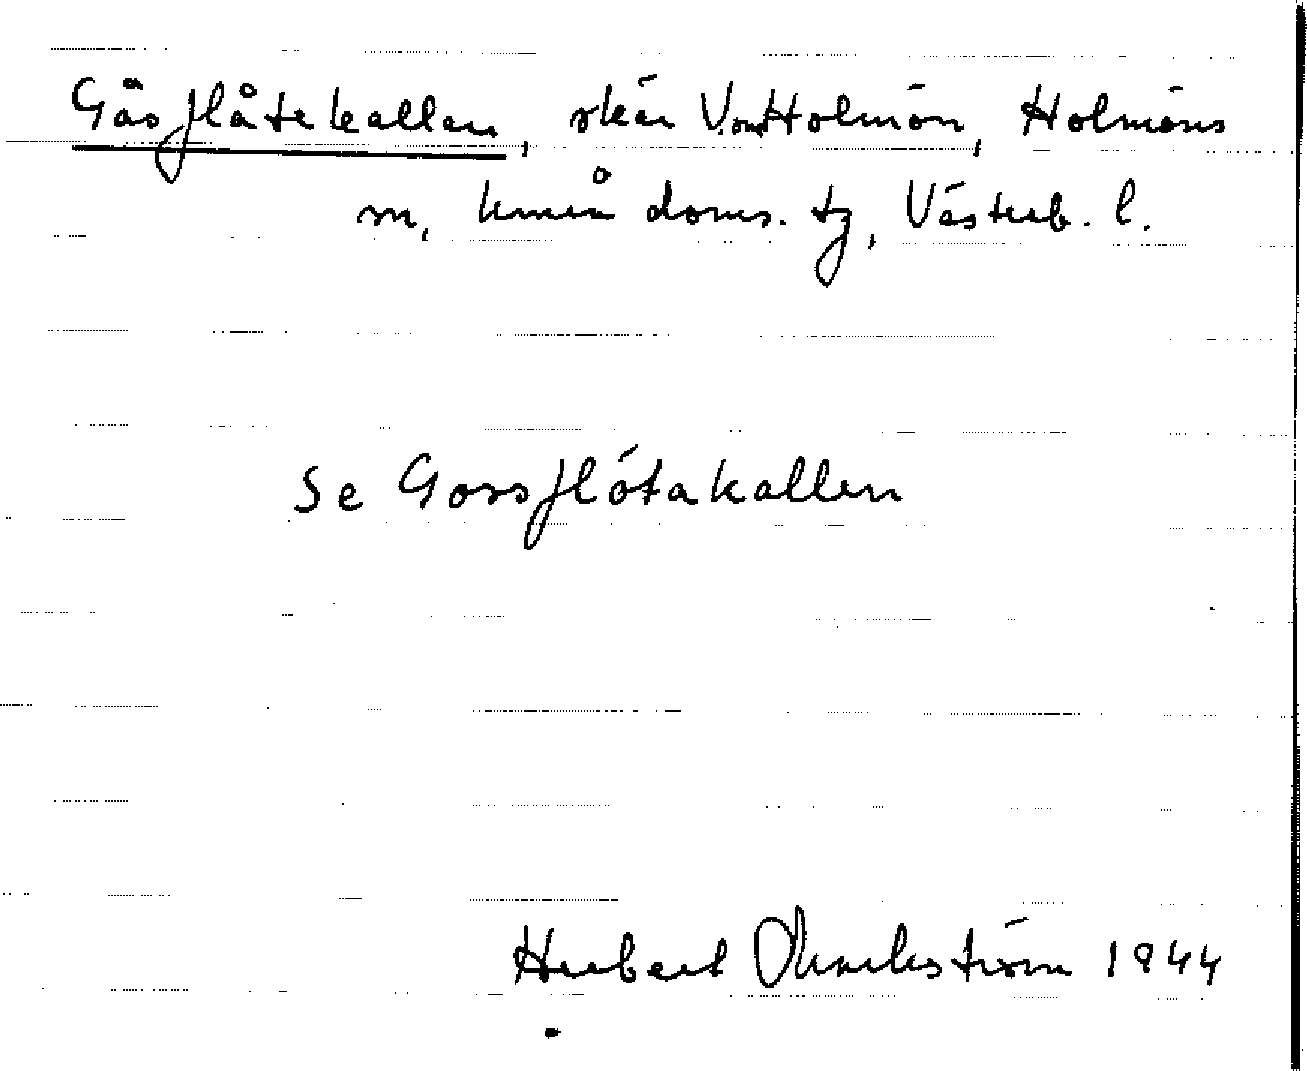 Gåsflåtekallen, skär V. om Holmön, Holmöns
m, Umeå doms. tg, Västerb. l.
Se Gossflötakallen
Herbert 1944